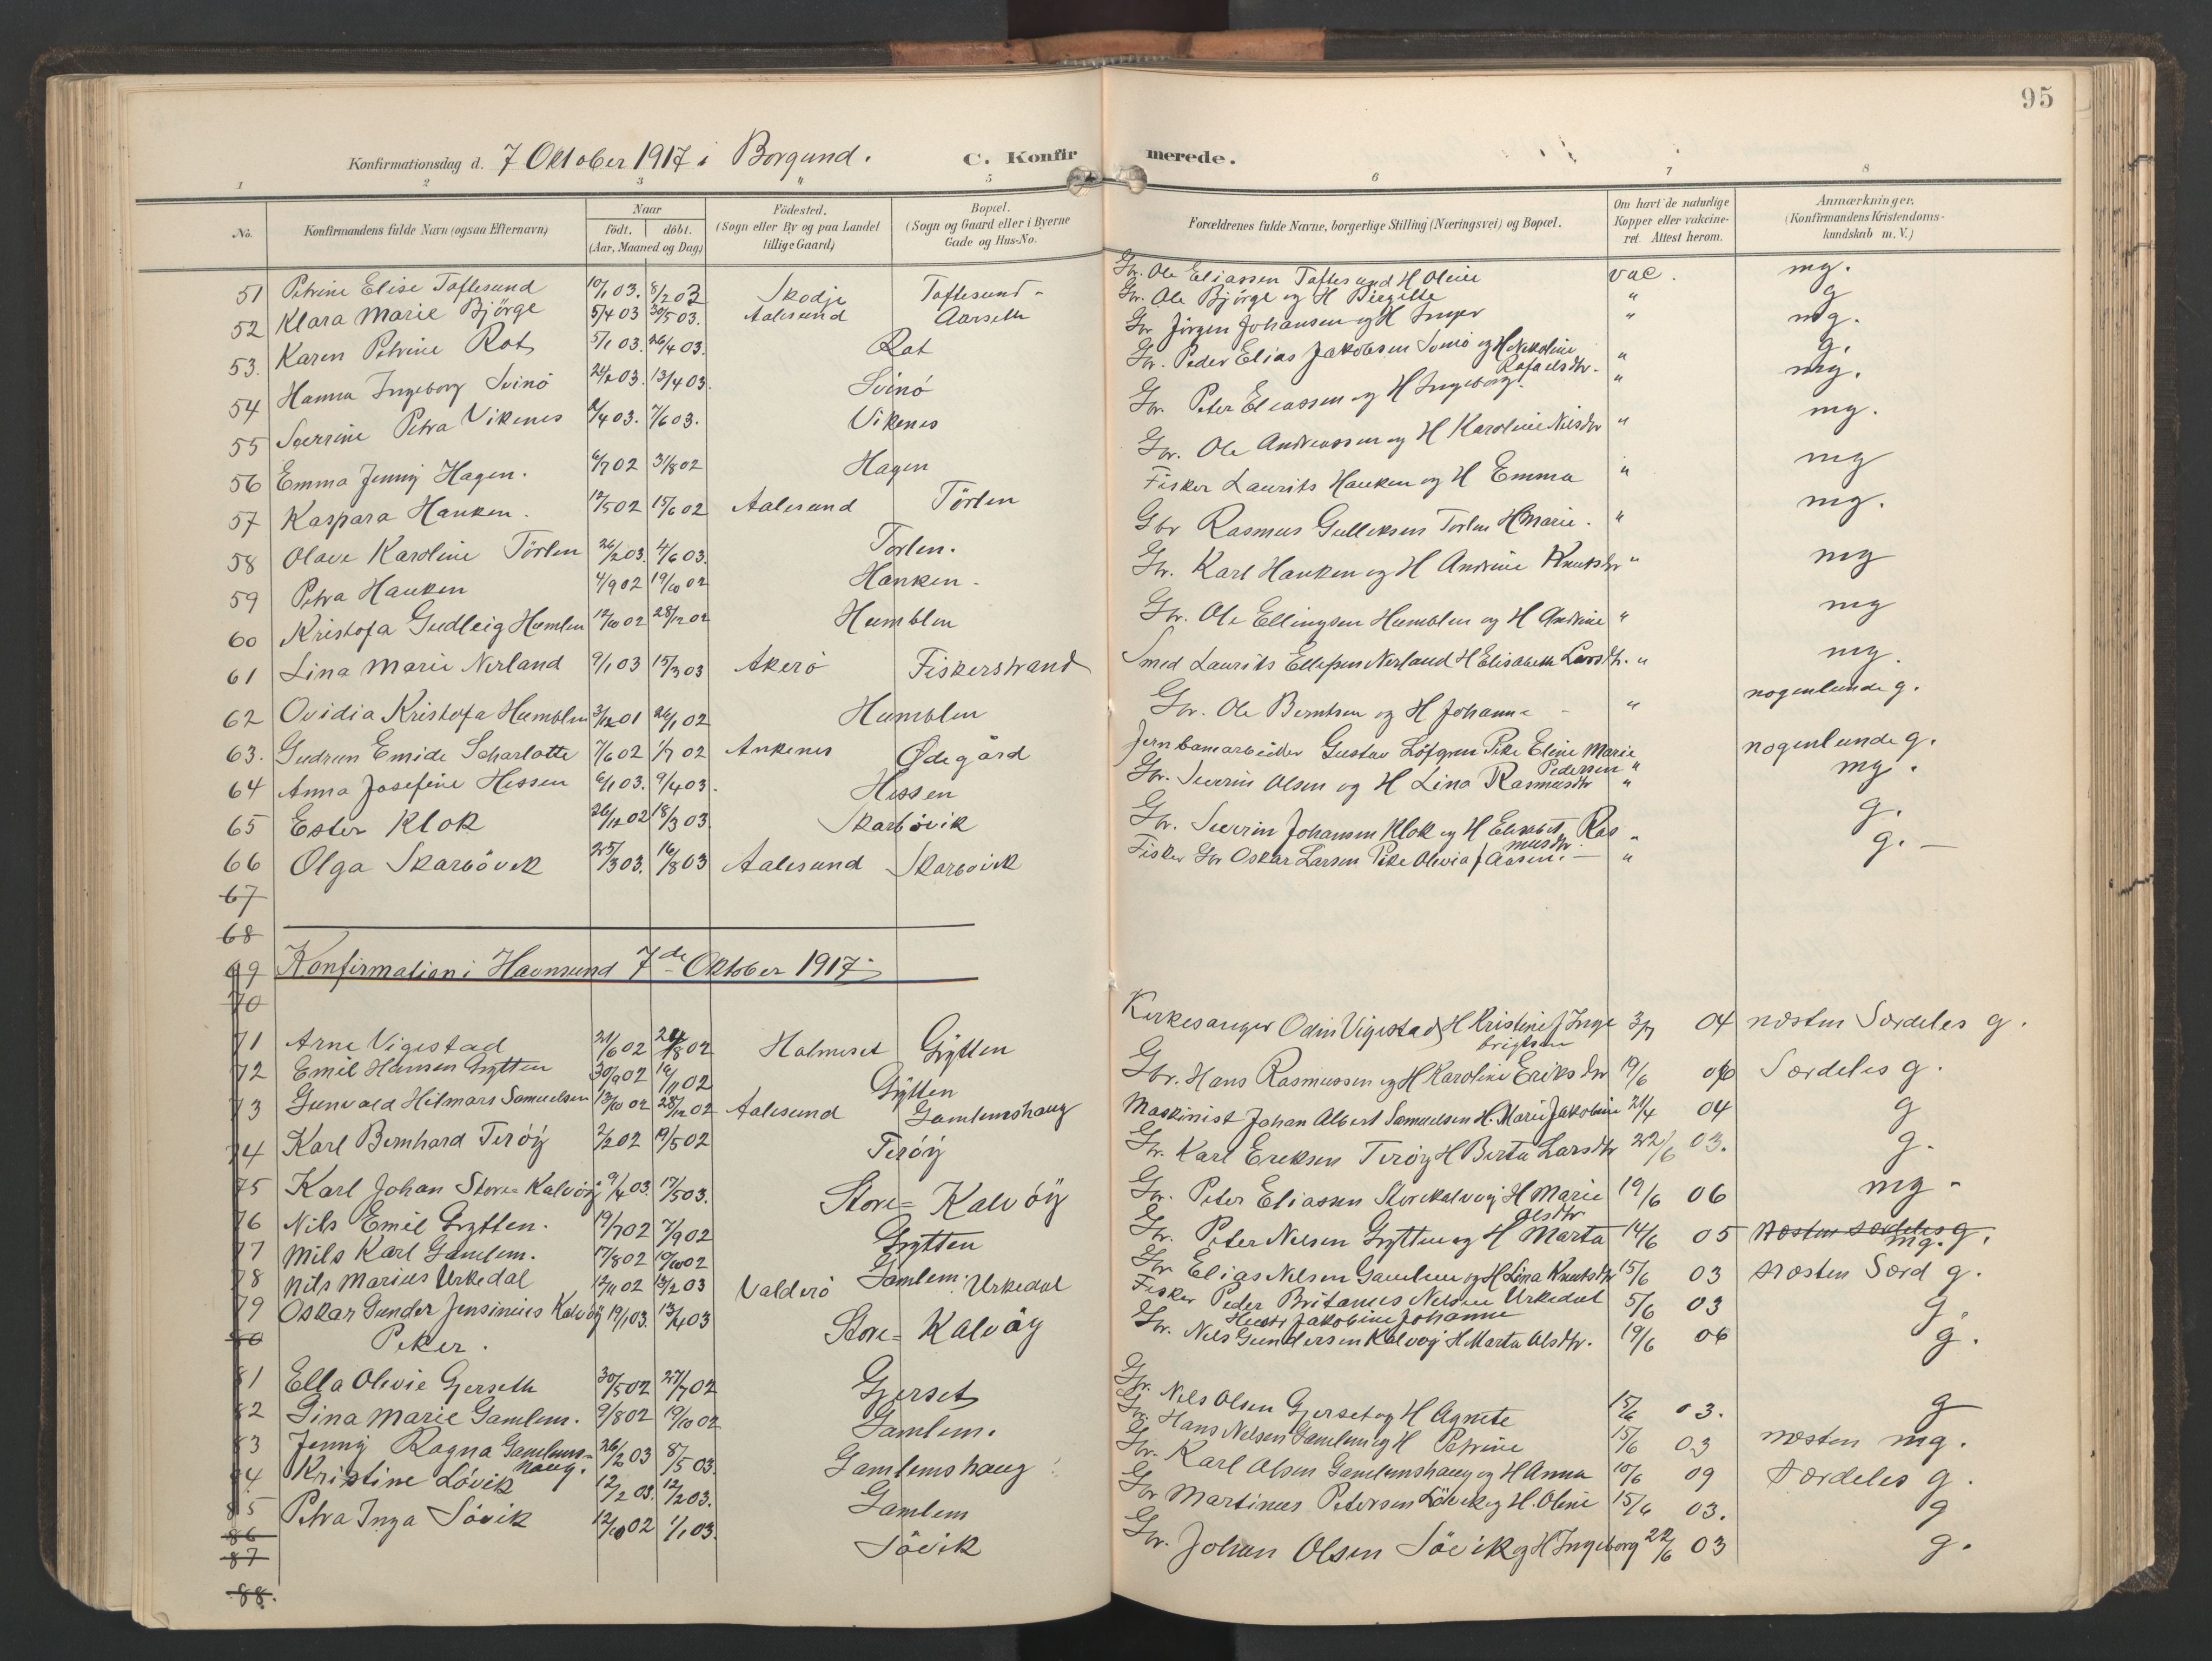 95
Konfirmationsdag d. 7 Oktober 1917 i Borgund. C. Konfirmerede.
1 2 3 4 5 6 7 8
No. Konfirmandens fulde Navn (ogsaa Efternavn) Naar födt. döbt. (Aar, Maaned og Dag) Födested. (Sogn eller By og paa Landet tillige Gaard) Bopæl. (Sogn og Gaard eller i Byerne Gade og Hus-No. Forældrenes fulde Navne, borgerlige Stilling (Næringsvei) og Bopæl. Om havt de naturlige Kopper eller vakcineret. Attest herom. Anmærkninger. (Konfirmandens Kristendomskundskab m. V.)
51 Petrine Elise Taftesund 10/1 03. 8/2 03 Skodje Taftesund - Gbr. Ole Eliassen Taftesund H Oline vac. mg.
52 Klara Marie Bjørge 5/4 03 30/5 03. Aalesund Aarseth Gbr. Ole Bjørge og H Birgitte " g
53. Karen Petrine Rot 5/1 03. 26/4 03. Rot Gbr Jörgen Johansen og H Inger " mg.
54 Hanna Ingeborg Svinö 24/2 03. 13/4 03. Svinö Gbr. Peder Elias Jakobsen Svinö og H Nekoline Rafaelsdtr. " g.
55 Severine Petra Vikenes /4 03. 7/6 03. Vikenes Gbr. Peter Eliassen og H Ingeborg. " mg.
56 Emma Jenny Hagen. 6/7 02 31/8 02 Hagen Gbr. Ole Andreassen og H Karoline Nilsdtr " mg.
57 Kaspara Hanken. 12/5 02 15/6 02 Aalesund Törlen Fisker Laurits Hanken og H Emma " mg
58 Olave Karoline Törlen 26/2 03. 4/6 03. Torlen. Gbr Rasmus Gulleksen Torlen H Marie. " mg.
59 Petra Hanken 4/9 02 19/10 02 Hanken. Gbr. Karl Hanken og H Andrine Knutsdtr " mg
60 Kristofa Gudleig Humlen 12/10 02 28/12 02 Humblen Gbr. Ole Ellingsen Humblen og H Andrine " mg
61 Lina Marie Nerland 9/1 03 15/3 03 Akerö Fiskerstrand Smed Laurits Ellefsen Nerland H Elisabeth Larsdtr. " mg.
62 Ovidia Kristofa Humblen 3/12 01 26/1 02 Humblen Gbr. Ole Berntsen og H Johanne - " nogenlunde g.
63. Gudrun Emide Scharlotte 7/6 02 1/7 02 Ankenes Ødegård Jernbanearbeider Gustav Löfgren Pike Eline Marie Pedersen " nogenlunde g.
64 Anna Josefine Hessen 6/1 03. 9/4 03. Hessen Gbr. Severin Olsen og H Lina Rasmusdtr " mg.
65 Ester Klok 26/12 02 18/3 03. Skarbövik Gbr. Severin Johansen Klok og H Elisabet Rasmusdtr " g.
66 Olga Skarbövik 25/3 03. 16/8 03 Aalesund Skarbövik Fisker Gbr Oskar Larsen Pike Olivia J Aasen. — " g. —
67
68
69 Konfirmation i Havnsund 7de Oktober 1917.
70
71 Arne Vigestad 21/6 02 24/8 02 Holmeset Grytten Kirkesanger Odin Vigestad H Kristine J Ingebrigtsen 3/7 04 næsten Særdeles g.
72 Emil Hansen Grytten 30/9 02 16/11 02 Grytten Gbr. Hans Rasmussen og H Karoline Eriksdtr 19/6 06 Særdeles g.
73 Gunvald Hilmars Samuelsen 13/10 02 28/12 02 Aalesund Gamlemshaug Maskinist Johan Albert Samuelsen H. Marie Jakobine 21/4 04 g
74 Karl Bernhard Teröy 2/2 02 19/5 02 Teröy Gbr. Karl Eriksen Teröy H Berta Larsdtr 22/6 03. g.
75 Karl Johan Store-Kalvöy 9/4 03. 17/5 03. Store-Kalvöy Gbr. Peter Eliassen Storekalvöy H Marie Olsdtr 19/6 06 mg -
76 Nils Emil Grytten. 19/7 02 7/9 02 Grytten Gbr. Peter Nilsen Grytten og H Marta 14/6 05 næsten særdeles g. mg.
77 Nils Karl Gamlem. 17/8 02 19/10 02 Gamlem. Gbr Elias Nilsen Gamlem og H Lina Knutsdtr 15/6 03 næsten Særd g.
78 Nils Marius Urkedal 12/11 02 13/2 03 Valderö Urkedal Fisker Peder Britanus Nilsen Urkedal Hustr Jakobine Johanne 5/6 03 g.
79 Oskar Gunder Jensinius Kalvöy 19/1 03. 13/4 03 Store-Kalvöy Gbr. Nels Gundersen Kalvöy H Marta Olsdtr. 19/6 06 g.
80 Peker.
81 Ella Olivie Gjerseth 30/5 02 27/7 02 Gjerset Gbr. Nils Olsen Gjerset og H Agnete 15/6 03. g
82 Gina Marie Gamlem. 9/8 02 19/10 02 Gamlem. Gbr. Hans Nilsen Gamlem og H Petrine 15/6 03 næsten mg.
83 Jenny Ragna Gamlemshaug. 26/2 03 8/5 03. Gamlemshaug Gbr. Karl Olsen Gamlemshaug og H Anna 10/6 09 særdeles g.
84 Kristine Lövik 12/2 03. 12/2 03. Gamlem Gbr Martinus Petersen Lövik og H. Oline 15/6 03. g
85 Petra Inga Sövik 12/10 02 1/1 03. Sövik Gbr. Johan Olsen Sövik og H Ingeborg 22/6 03 g.
86
87
88.